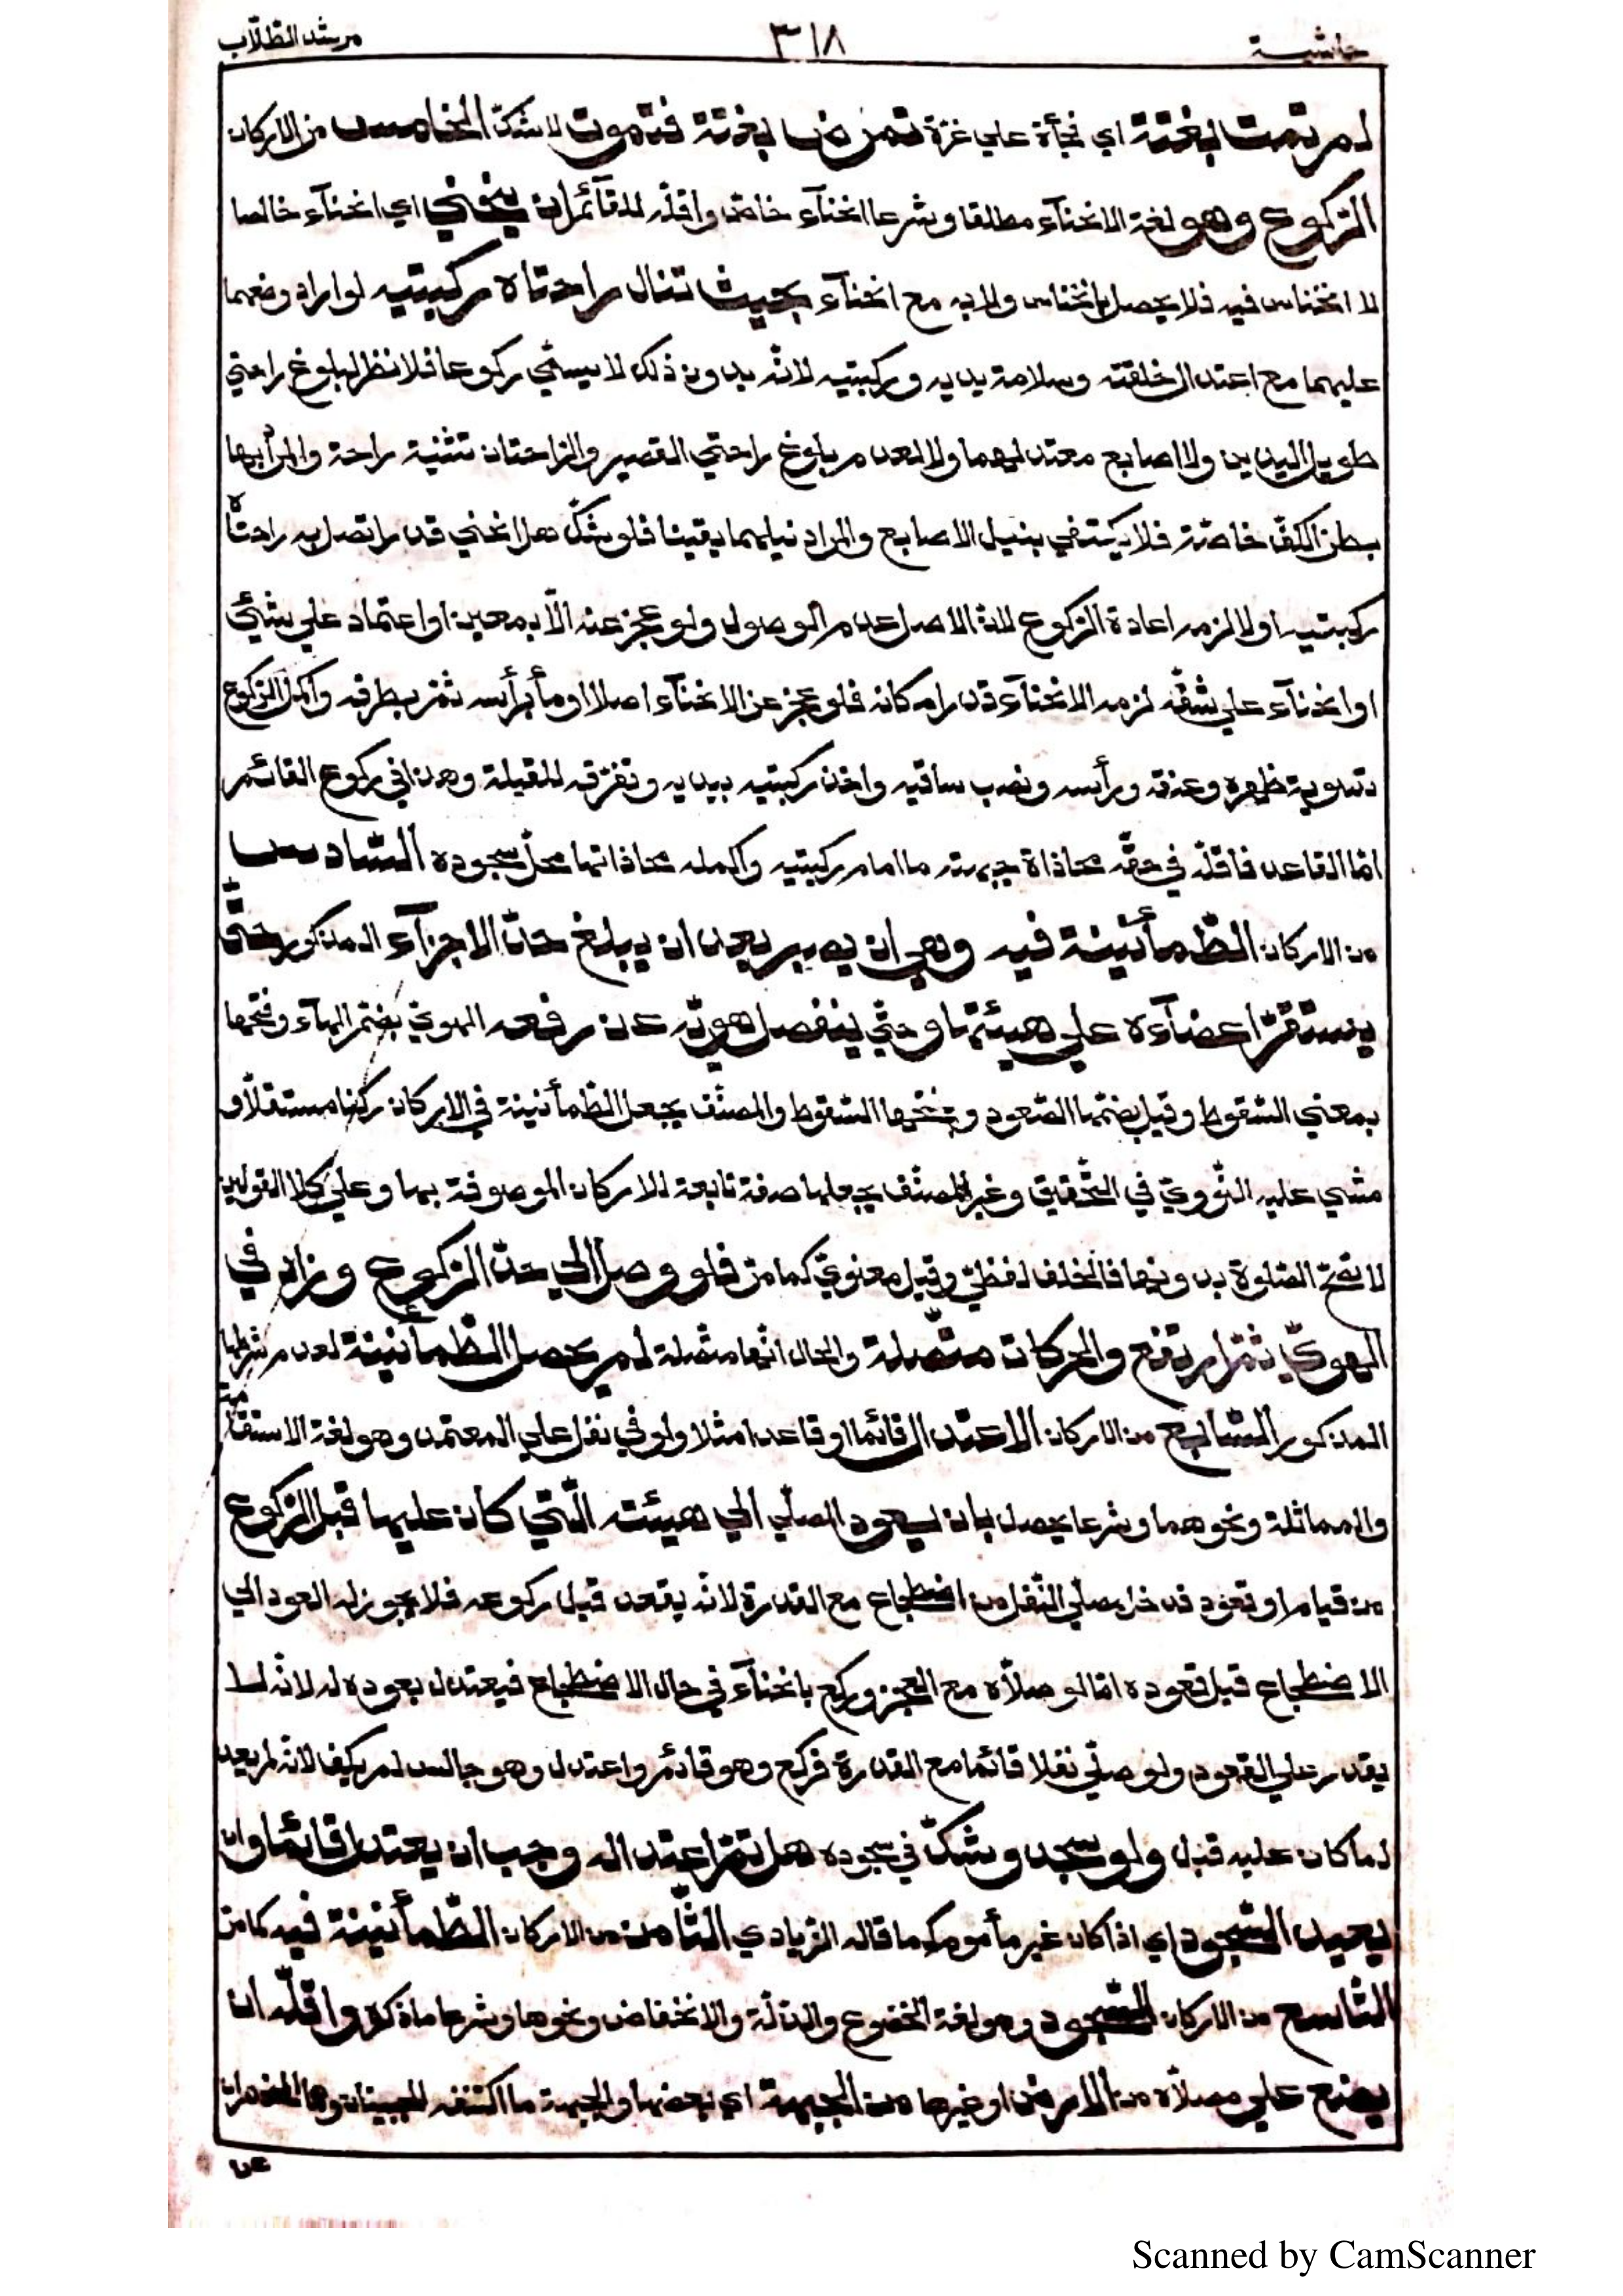 حاشية ٣١٨ مرشد الطلّاب
لم تمت بغتة اي فجأة علي غرة تمرض بغتة فتموت لا شكّ الخامس من الاركان
الرّكوع وهو لغة الانحنآء مطلقا وشرعا انحنآء خاصّ واقلّه للقآئم ان ينحني اي انحنآء خالصا
لا انخناس فيه فلا يحصل بانخناس ولا به مع انحنآء بحيث تنال راحتاه ركبتيه لو اراد وضعهما
عليهما مع اعتدال خلقته وسلامة يديه وركبتيه لانّه بدون ذلك لا يسمّي ركوعا فلا نظر لبلوغ راحتي
طويل اليدين ولا اصابع معتدلهما ولا لعدم بلوغ راحتي القصير والرّاحتان تثنية راحة والمراد بها
بطن الكفّ خاصّة فلا يكتفي بنيل الاصابع والمراد نيلهما يقينا فلو شكّ هل انحني قدرا تصل به راحتاه
ركبتيه او لا لزمه اعادة الرّكوع لانّ الاصل عدم الوصول ولو عجز عنه الّا بمعين او اعتماد علي شيئ
او انحنآء علي شقّه لزمه الانحنآء قدر امكانه فلو عجز عن الانحنآء اصلا اومأ برأسه ثمّ بطرفه واكمل الرّكوع
تسوية ظهره وعنقه ورأسه ونصب ساقيه واخذ ركبتيه بيديه وتفرّقه للقبلة وهذا في ركوع القائم
امّا القاعد فاقلّه في حقّه محاذاة جبهته ما امام ركبتيه واكمله محاذاتها محلّ سجوده السّادس
من الاركان الطّمأنينة فيه وهي ان يصبر بعد ان يبلغ حدّ الاجزآء المذكور حتّي
يستقرّ اعضآءه علي هيئتها وحتّي ينفصل هويّه عن رفعه الهويّ بضمّ الهآء وفتحها
بمعني السّقوط وقيل بضمّها الصّعود وبفتحها السّقوط والمصنّف يجعل الطّمأنينة في الاركان ركنا مستقلّا و
مشي عليه النّوويّ في التّحقيق وغير المصنّف يجعلها صفة تابعة للاركان الموصوفة بها وعلي كلا القولين
لا تصحّ الصّلوة بدونها فالخلف لفظيّ وقيل معنويّ كما مرّ فلو وصل الي حدّ الرّكوع وزاد في
الهويّ ثمّ ارتفع والحركات متّصلة والحال انّها متّصلة لم يحصل الطّمأنينة لعدم شرطها
المذكور السّابع من الاركان الاعتدال قائما او قاعدا مثلا ولو في نفل علي المعتمد وهو لغة الاستقامة
والمماثلة ونحوهما وشرعا يحصل بان يعود المصلّي الي هيئته الّتي كان عليها قبل الرّكوع
من قيام او قعود فدخل مصلّي النّفل من اضطجاع مع القدرة لانّه يقعد قبل ركوعه فلا يجوز له العود الي
الاضطجاع قبل قعوده امّا لو صلّاه مع العجز وركع بانحنآء في حال الاضطجاع فيعتدل بعوده له لانّه لا
يقدر علي القعود ولو صلّي نفلا قائما مع القدرة فركع وهو قائم واعتدل وهو جالس لم يكف لانّه لم يعد
لما كان عليه قبل ولو سجد وشكّ في سجوده هل تمّ اعتداله وجب ان يعتدل قائما وان
يعيد السّجود اي اذا كان غير مأموم كما قاله الزّيادي الثّامن من الاركان الطّمأنينة فيه كما مرّ
التّاسع من الاركان السّجود وهو لغة الخضوع والذلّة والانخفاض ونحوها وشرعا ما ذكره واقلّه ان
يضع علي مصلّاه من الارض او غيرها من الجبهة اي بعضها والجبهة ما اكتنفه الجبينان وهما المنحدران
عن
Scanned by CamScanner